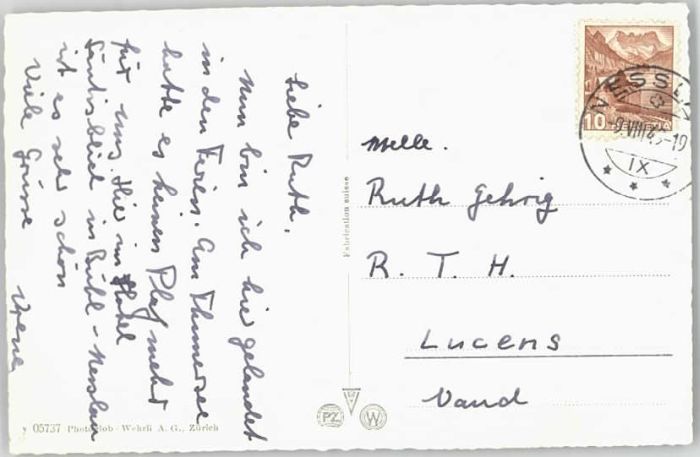 Liebe Ruth,
Nun bin ich hier gelandet
in den Ferien. Am Thunersee
hatte es keinen Platz mehr
für uns. Hier im Hotel
Säntisblick in Bühl-Nesslau
ist es sehr schön
Viele Grüsse
Verena
Fabrication suisse
Melle.
Ruth Gehrig
R. T. H.
Lucens
Vaud
10
NESSL
9.VIII 4
-19
IX
PZ W
05737 Photoglob-Wehrli A. G., Zürich